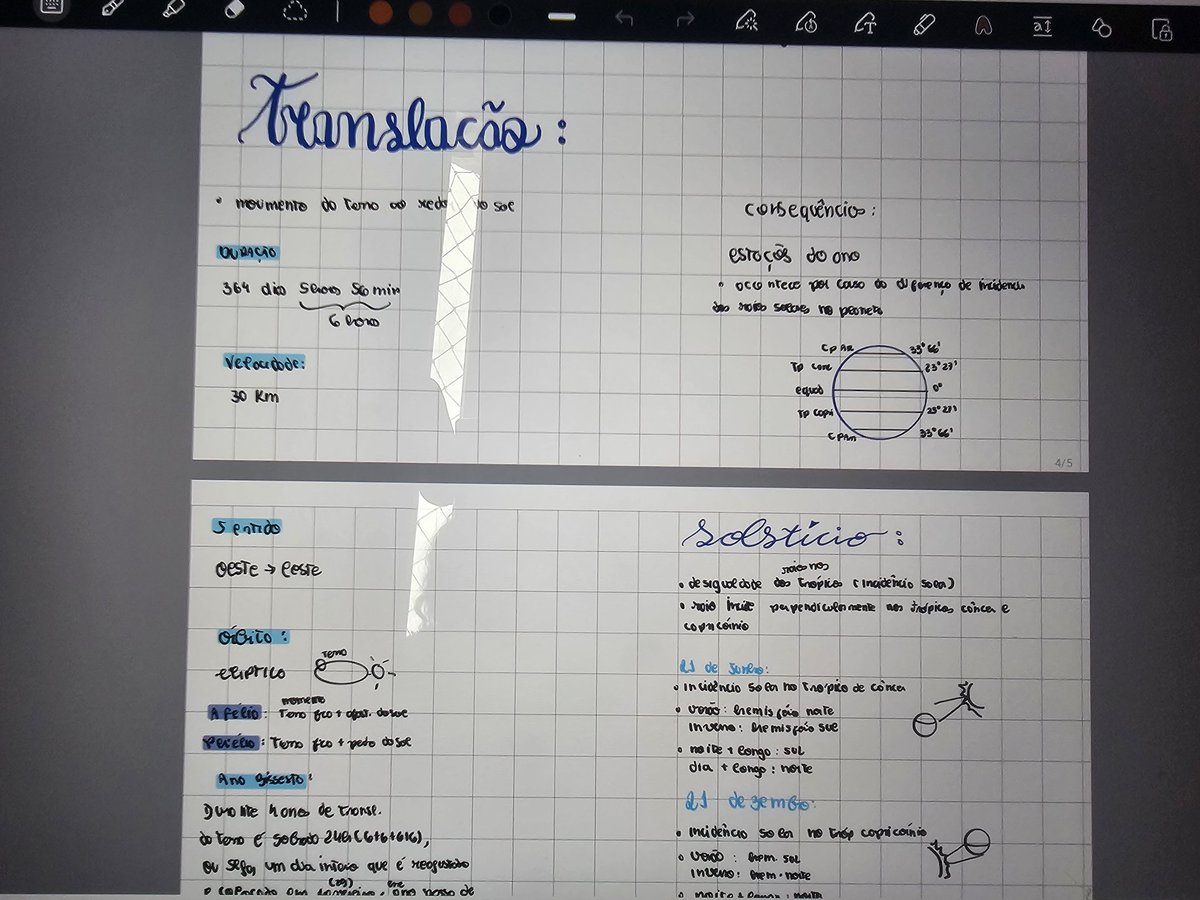 Translacão:
• movimento da Terra ao redo do sol
DURAÇÃO
364 dias 5horas 56 min
6 horas
Velocidade:
30 Km
consequências:
estaçõs do ano
• acontece por causa da diferença de incidencia
dos raios solares no planeta
CP AR 33°66'
Tp canc 23°27'
equad 0°
Tp capri 23°27'
CPAn 33°66'
4/5
Sentido
OESTE → LESTE
Órbita:
ELÍPTICA
Terra
momento
Afélio: Terra fica + afast. do sol
Periélio: Terra fica + perto do sol
Ano Bissesto:
Durante 4 anos de transl.
da terra é sobrado 24h (6+6+6+6),
ou seja, um dia inteiro que é
Solstício:
raios nos
• desigualdade dos Trópicos (incidência solar)
• raio incide perpendicularmente nos trópicos câncer e
capricórnio
21 de Junho:
• incidência solar no Trópico de câncer
• verão: hemisfério norte
inverno: hemisfério sul
• noite + longa: sul
dia + longo: norte
21 dezembro:
• incidência solar no tróp capricórnio
• verão: hem. sul
inverno: hem. norte